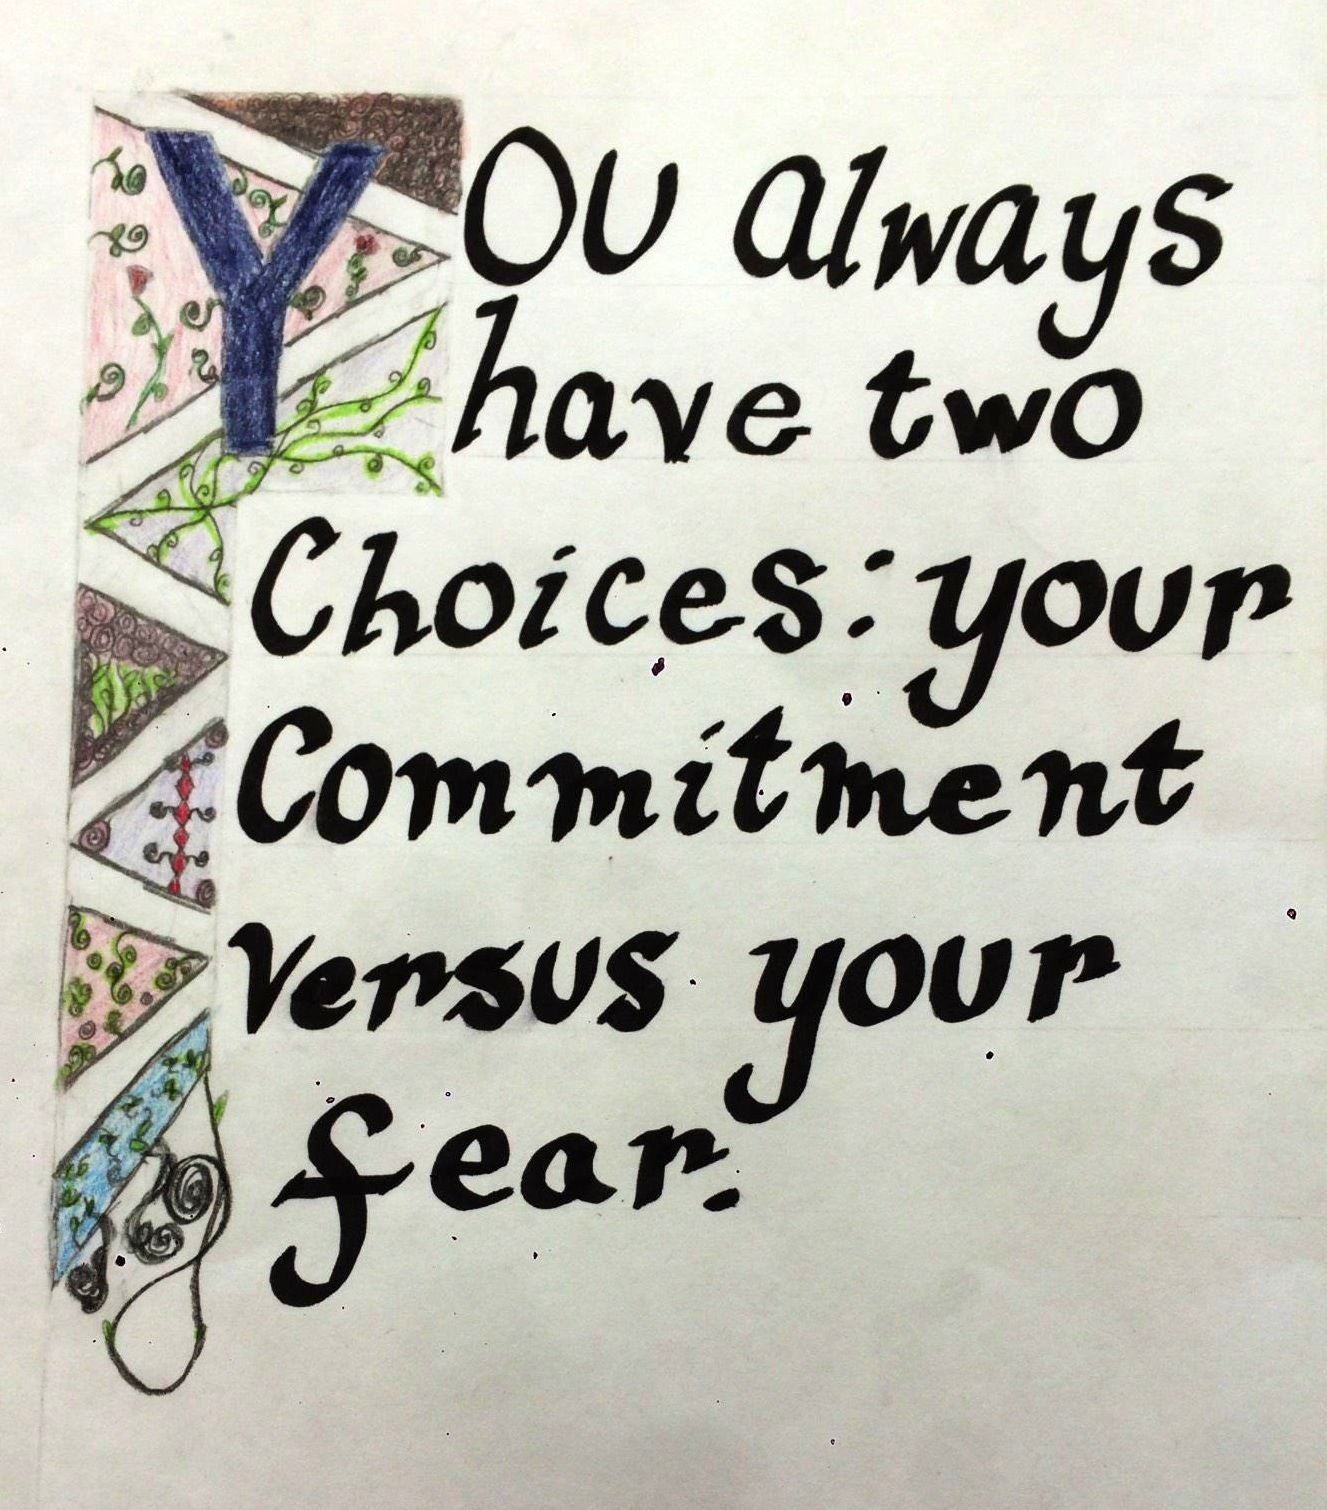 YOU Always
have two
Choices: your
Commitment
Versus your
fear.